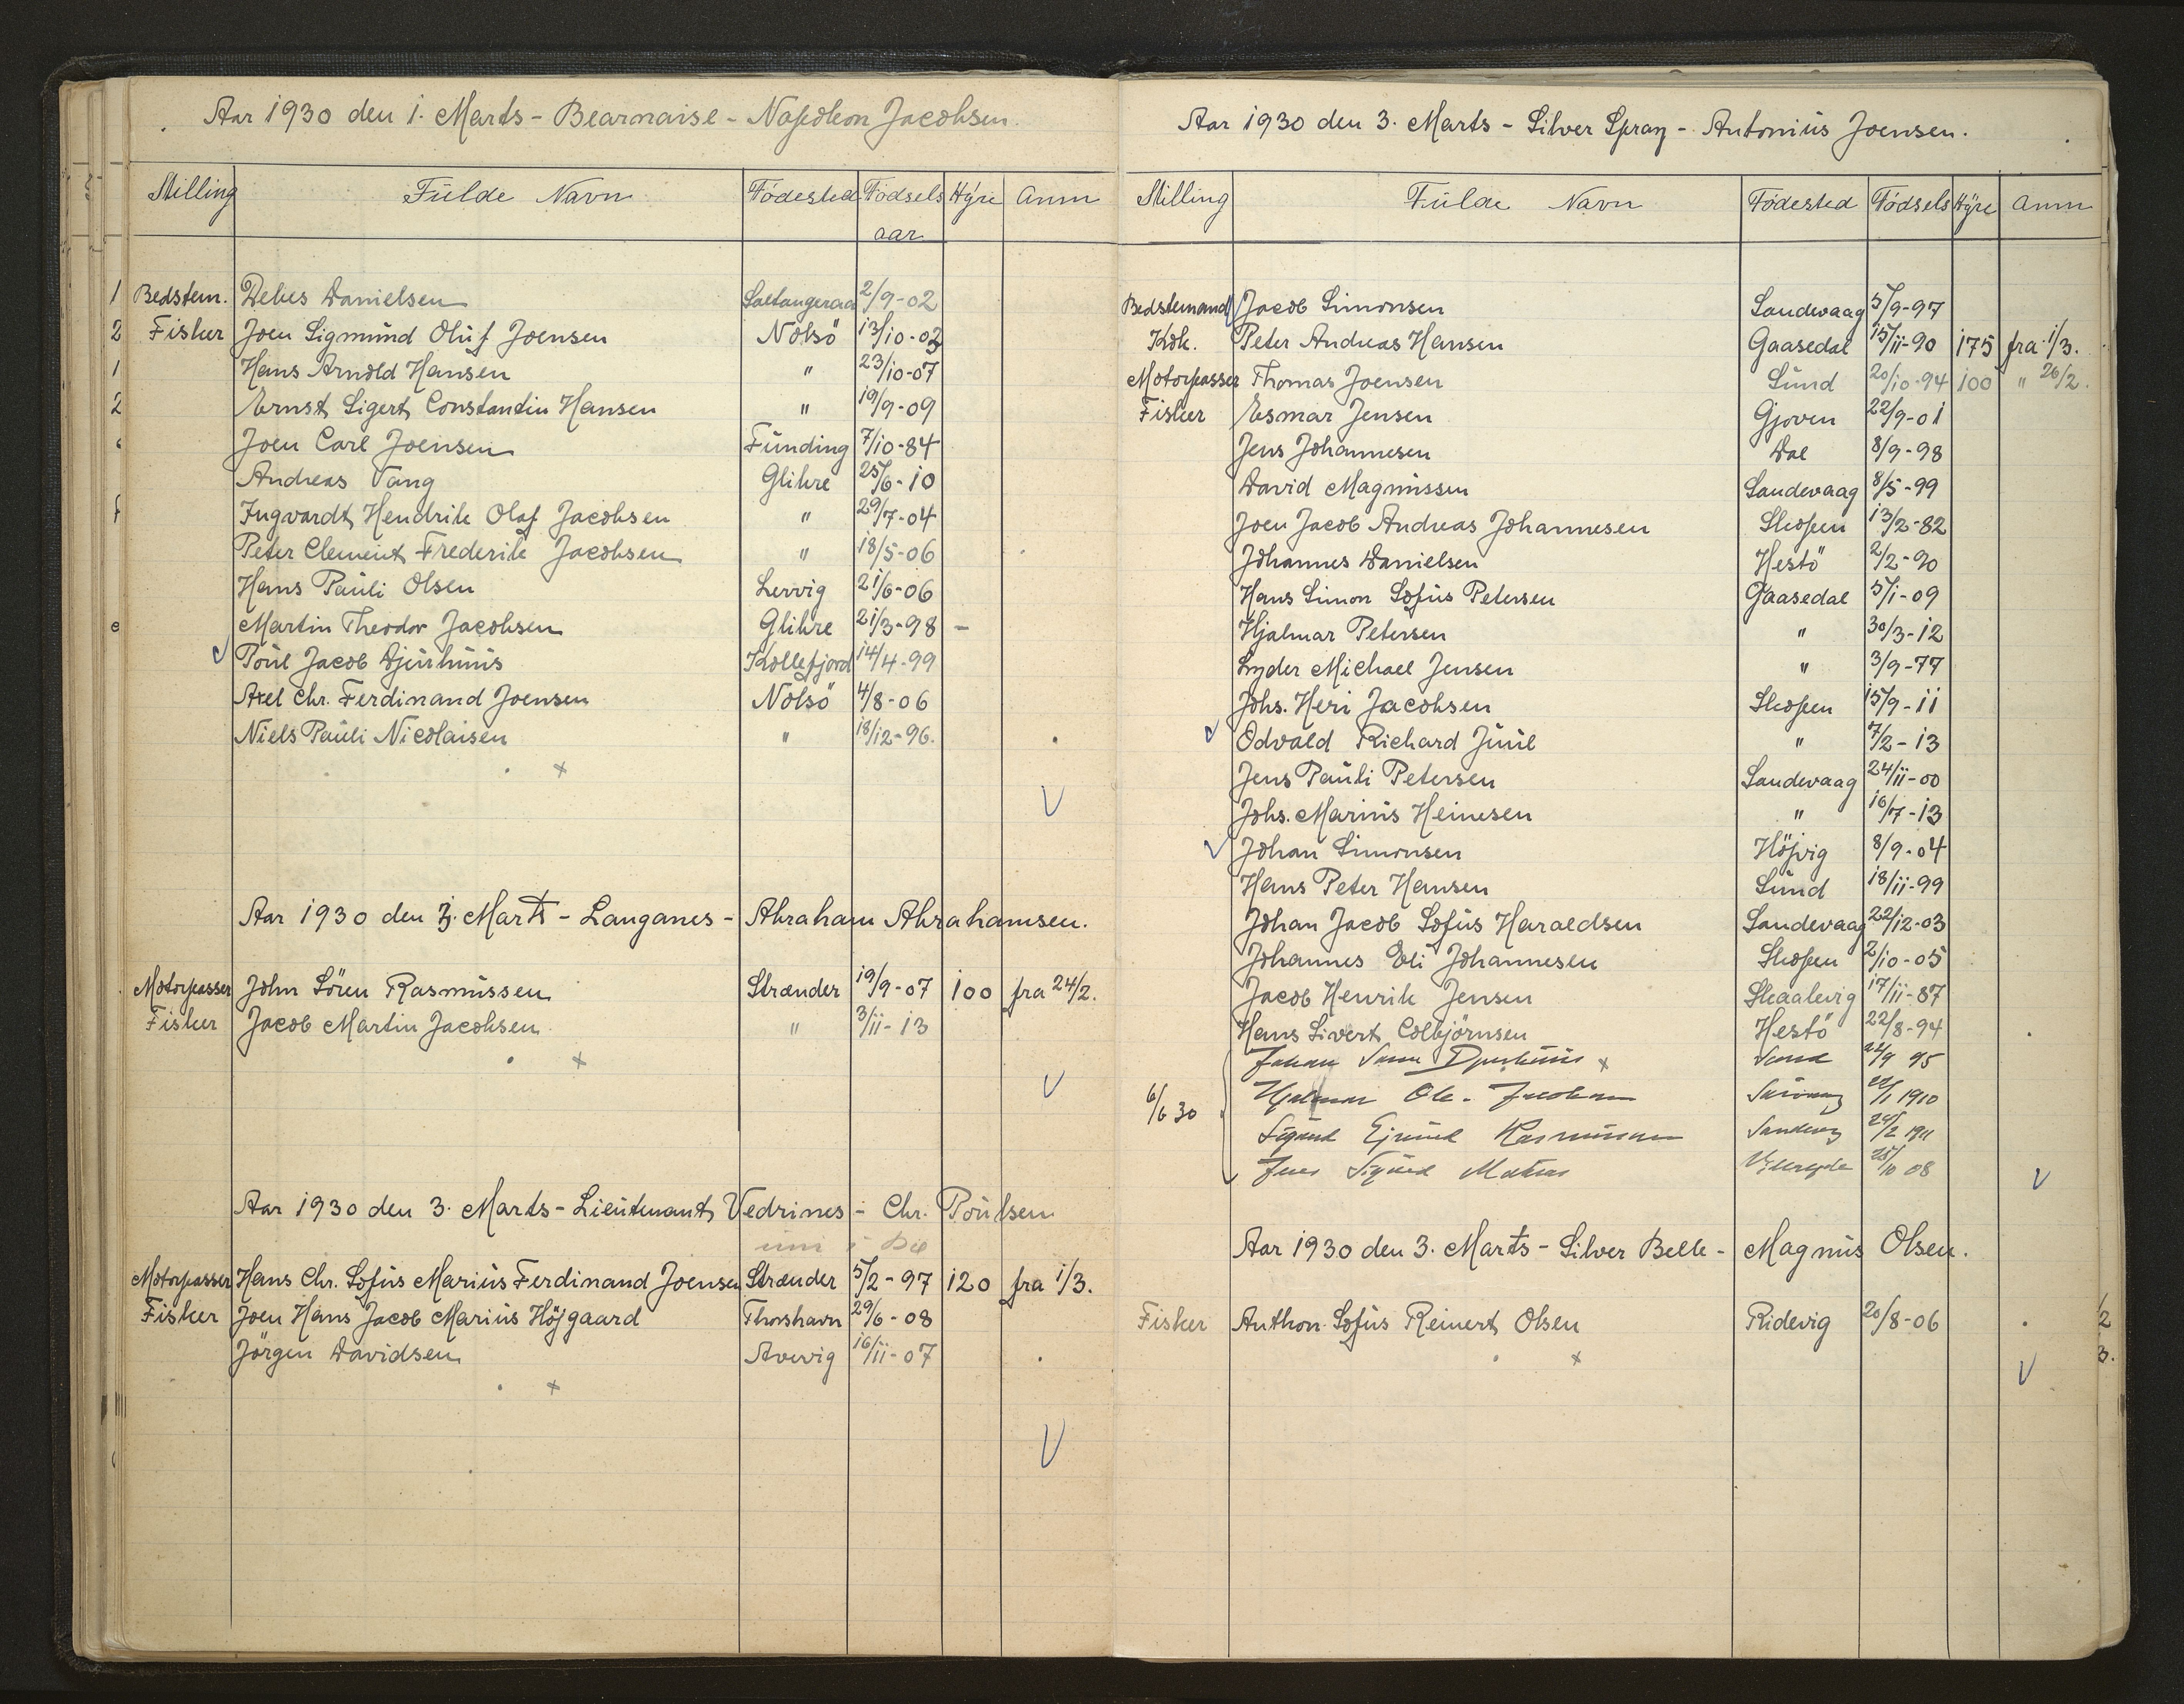 Aar 1930 den 1. Marts - Bearnaise - Napoleon Jacobsen.
Stilling Fulde Navn Födested Födsels Hyre Anm
aar
Bedstem. Debes Danielsen Saltangeraa 2/9-02
Fisker Joen Sigmund Oluf Joensen Nolsö 13/10-03
Hans Arnold Hansen " 23/10-07
Ernst Sigert Constantin Hansen " 19/9-09
Joen Carl Joensen Funding 7/10-84
Andreas Vang Glibre 25/6-10
Ingvardt Hendrik Olaf Jacobsen " 29/7-04
Peter Clement Frederik Jacobsen " 18/5-06
Hans Pauli Olsen Lervig 21/6-06
Martin Theodor Jacobsen Glibre 21/3-98 -
Poul Jacob Djurhuus Kollefjord 14/4-99
Axel Chr. Ferdinand Joensen Nolsö 4/8-06
Niels Pauli Nicolaisen " 18/12-96.
Aar 1930 den 3. Marts - Langanes - Abraham Abrahamsen.
Motorpasser John Sören Rasmussen Strænder 19/9-07 100 fra 24/2.
Fisker Jacob Martin Jacobsen " 3/11-13
Aar 1930 den 3. Marts - Lieutenant Vedrines - Chr. Poulsen
Motorpasser Hans Chr. Sofus Marius Ferdinand Joensen Strænder 5/2-97 120 fra 1/3.
Fisker Joen Hans Jacob Marius Höjgaard Thorshavn 29/6-08
Jörgen Davidsen Arevig 16/11-07
Aar 1930 den 3. Marts - Silver Spray - Antonius Joensen.
Stilling Fulde Navn Födested Födsels Hyre Anm
Bedstemand Jacob Simonsen Sandevaag 5/9-97
Kok. Peter Andreas Hansen Gaasedal 15/11-90 175 fra 1/3.
Motorpasser Thomas Joensen Sund 20/10-94 100 " 26/2.
Fisker Esmar Jensen Gjoven 22/9-01
Jens Johannesen Dal 8/9-98
David Magnussen Sandevaag 8/5-99
Joen Jacob Andreas Johannesen Skopen 13/2-82
Johannes Danielsen Hestö 2/2-90
Hans Simon Sofus Petersen Gaasedal 5/1-09
Hjalmar Petersen " 30/3-12
Lyder Michael Jensen " 3/9-77
Johs. Heri Jacobsen Skopen 15/9-11
Odvald Richard Juul " 7/2-13
Jens Pauli Petersen Sandevaag 24/11-00
Johs. Marius Heinesen " 16/7-13
Johan Simonsen Höjvig 8/9-04
Hans Peter Hansen Sund 18/11-99
Johan Jacob Sofus Haraldsen Sandevaag 22/12-03
Johannes Eli Johannesen Skopen 2/10-05
Jacob Henrik Jensen Skaalevig 17/11-87
Hans Sivert Colbjörnsen Hestö 22/8-94
Johan Djurhuus Sand 22/9 95
6/6 30 Hjalmar Ole Jacobsen 22/1 1910
Sigurd Ejvind Rasmussen Sandevaag 24/2 1911
Jens Sigurd 25/10 08
Aar 1930 den 3. Marts - Silver Belle - Magnus Olsen.
Fisker Anthon Sofus Reinert Olsen Ridevig 20/8-06